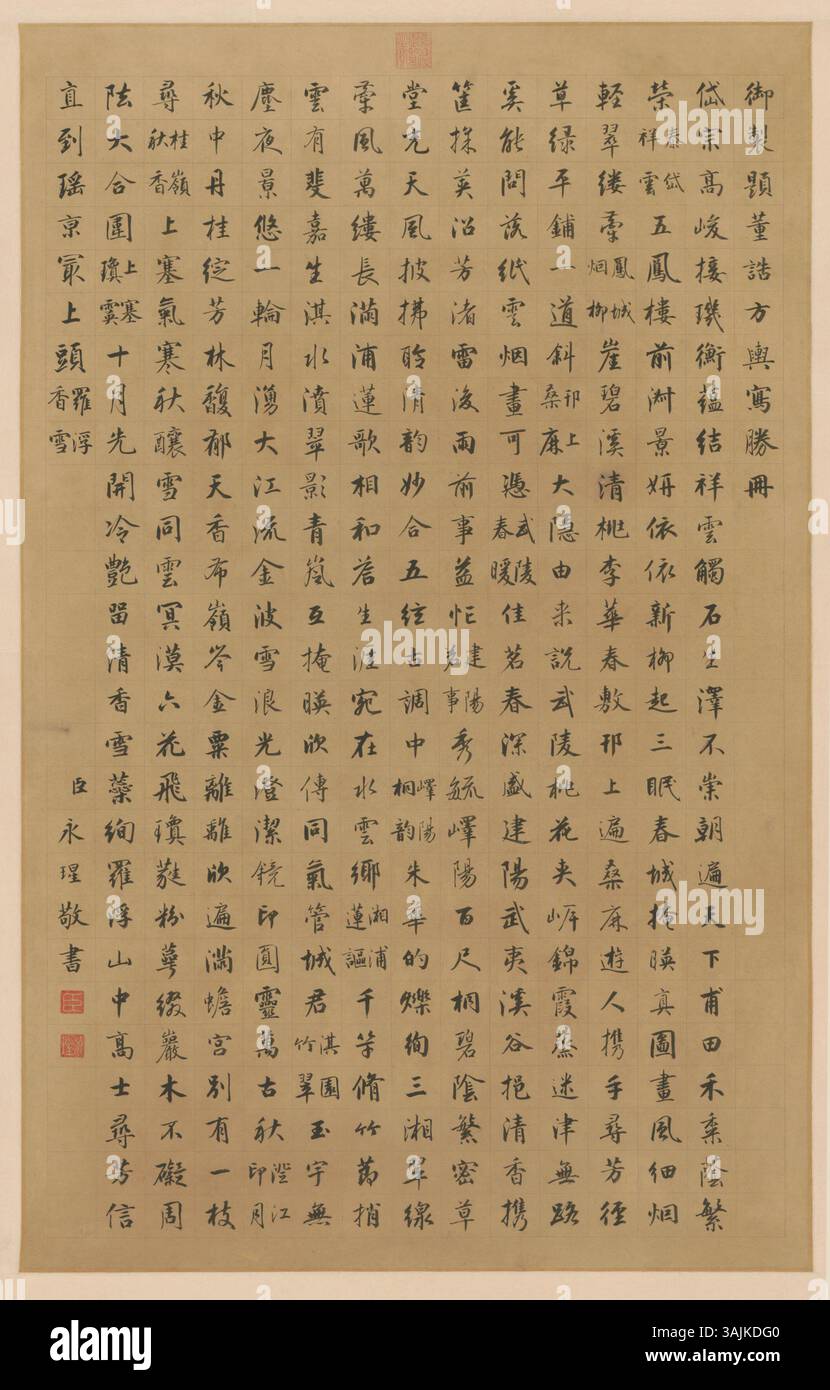 御製題董誥方輿寫勝冊
岱宗高峻接璣衡蘊結祥雲觸石生澤不崇朝遍天下甫田禾黍蔭繁
榮泰岱祥雲五鳳樓前淑景妍依依新柳起三眠春城掩映真圖畫風細烟
輕翠縷牽鳳城烟柳崖碧溪清桃李華春敷邗上遍桑麻遊人携手尋芳徑
草綠平鋪一道斜邗上桑麻大隱由来說武陵桃花夾岸錦霞蒸迷津無路
奚能問落紙雲烟畫可憑武陵春暖佳茗春深盛建陽武夷溪谷挹清香携
筐採英沿芳渚雷後雨前事益忙建陽茗事秀毓嶧陽百尺桐碧陰繁密草
堂充天風披拂聆清韵妙合五絃古調中嶧陽桐韵朱華的爍絢三湘翠線
牽風萬縷長滿浦蓮歌相和答生涯宛在水雲鄉湘浦蓮謳千竿脩竹蔚捎
雲有斐嘉生淇水濆翠影青嵐互掩映欣傳同氣管城君淇園竹翠玉宇無
塵夜景悠一輪月湧大江流金波雪浪光澄潔鏡印圓靈萬古秋澄江印月
秋中丹桂綻芳林馥郁天香布嶺岑金粟離離欣遍滿蟾宮別有一枝
尋桂嶺秋香上塞氣寒秋釀雪同雲冥漠六花飛瓊蕤粉萼綴巖木不礙周
阹大合圍上塞瓊霙十月先開冷艷留清香雪蘂絢羅浮山中高士尋芳信
直到瑤京最上頭羅浮香雪
臣永瑆敬書
alamy
Image ID: 3AJKDG0
www.alamy.com